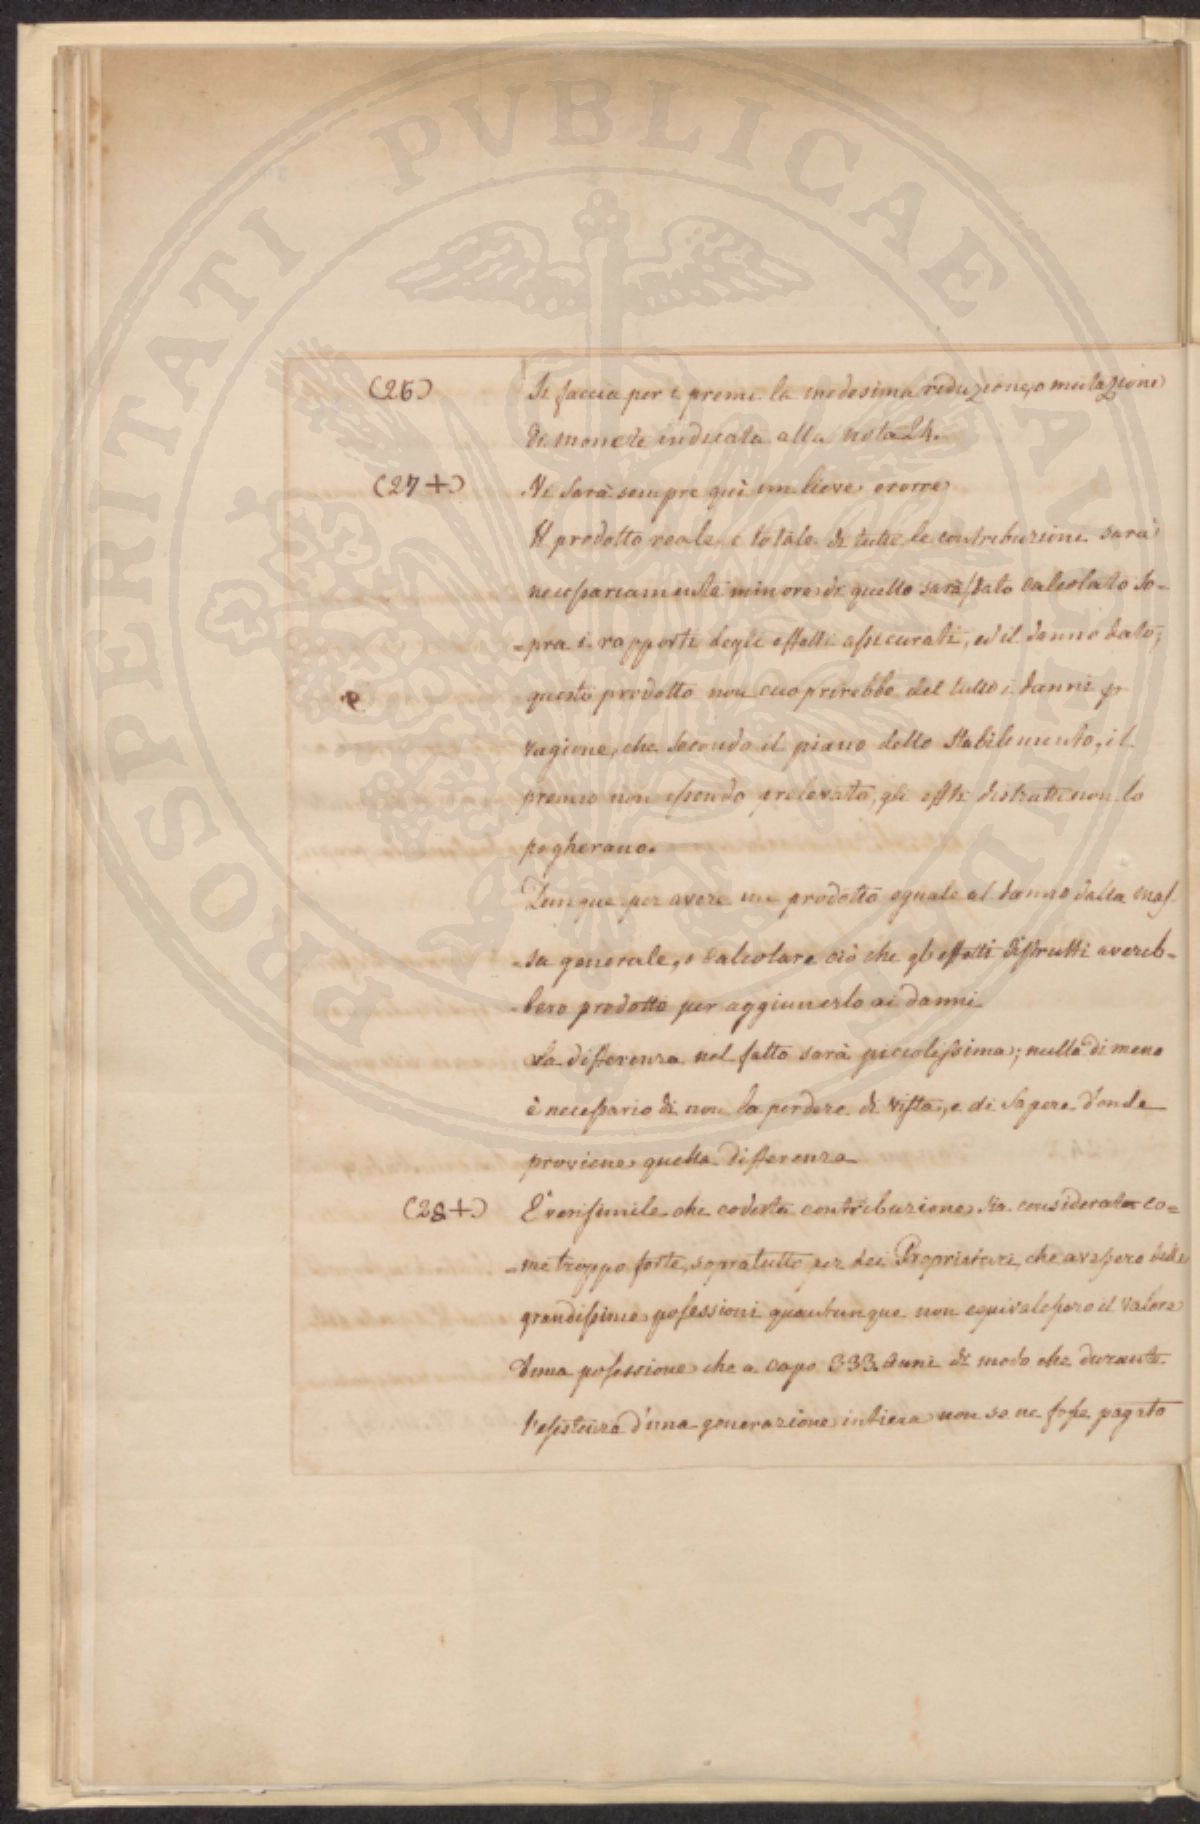 PROSPERITATI PUBLICAE AUGENDAE
(26) Si faccia per i premi la medesima reduzione, o mutazione
di monete indicata alla nota 24.
(27+) Vi sarà sempre quì un lieve erorre
Il prodotto reale e totale di tutte le contribuzioni sarà
necessariamente minore di quello sarà stato calcolato so=
=pra i rapporti degli effetti assicurati, ed il danno dato;
questo prodotto non cuoprirebbe del tutto i danni p
ragione, che secondo il piano dello Stabilimento, il
premio non essendo prelevato, gli effti distrutti non lo
pagherano.
Dunque per avere un prodotto eguale al danno dalla mas
=sa generale, e calcolare ciò che gli effetti distrutti avereb=
=bero prodotto per aggiunerlo ai danni
La differenza nel fatto sarà piccolissima; nulla di meno
è necessario di non la perdere di vista, e di sapere d'onde
proviene quella differenza
(28+) E' verisimile che codesta contribuzione sia considerata co=
=me troppo forte, sopratutto per dei Proprietari, che avessero delle
grandissime possessioni quantunque non equivalessero il valore
d'una possessione che a capo 333. anni di modo che durante
l'esistenza d'una generazione intiera non se ne fosse pagato